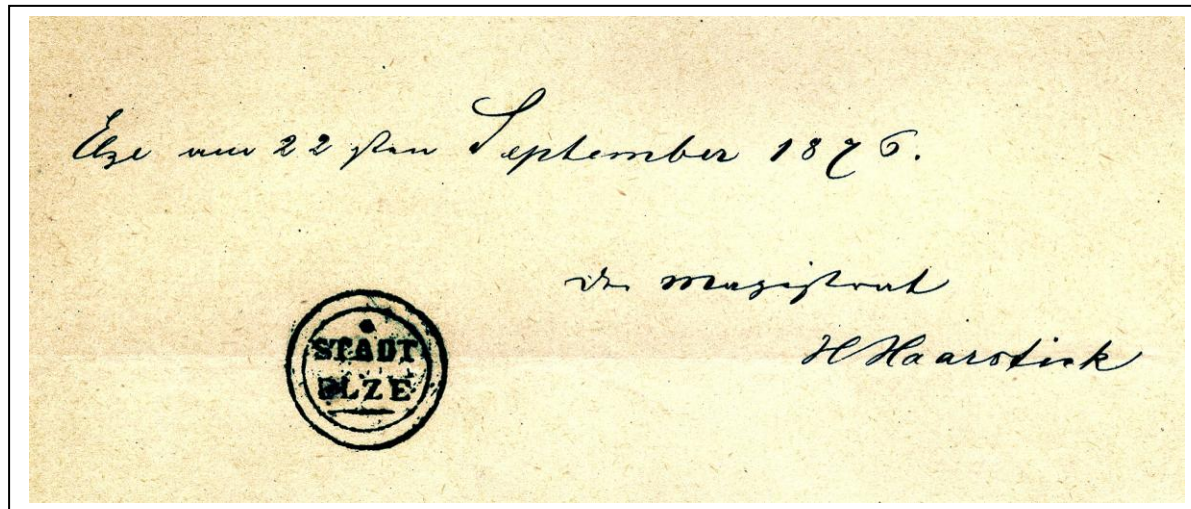 Elze am 22 sten September 1876.
der Magistrat
H Haarstick
STADT
ELZE